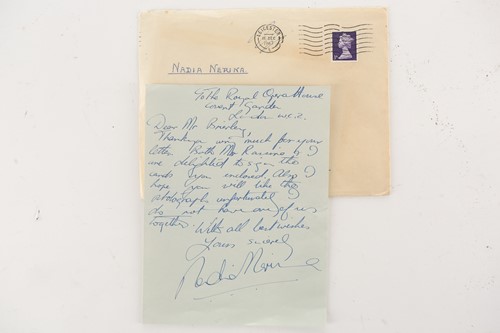 LEICESTER
1967
NADIA NERINA
To The Royal Opera House
Covent Garden
London W.C.2.
Dear Mr Brierley,
Thankyou very much for your
letter. Both Mr
we delighted to sign the
cards you enclosed. Also I
hope you will like the
photographs unfortunately I
do not have one of us
together. With all best wishes
Yours sincerely
Nadia Nerina